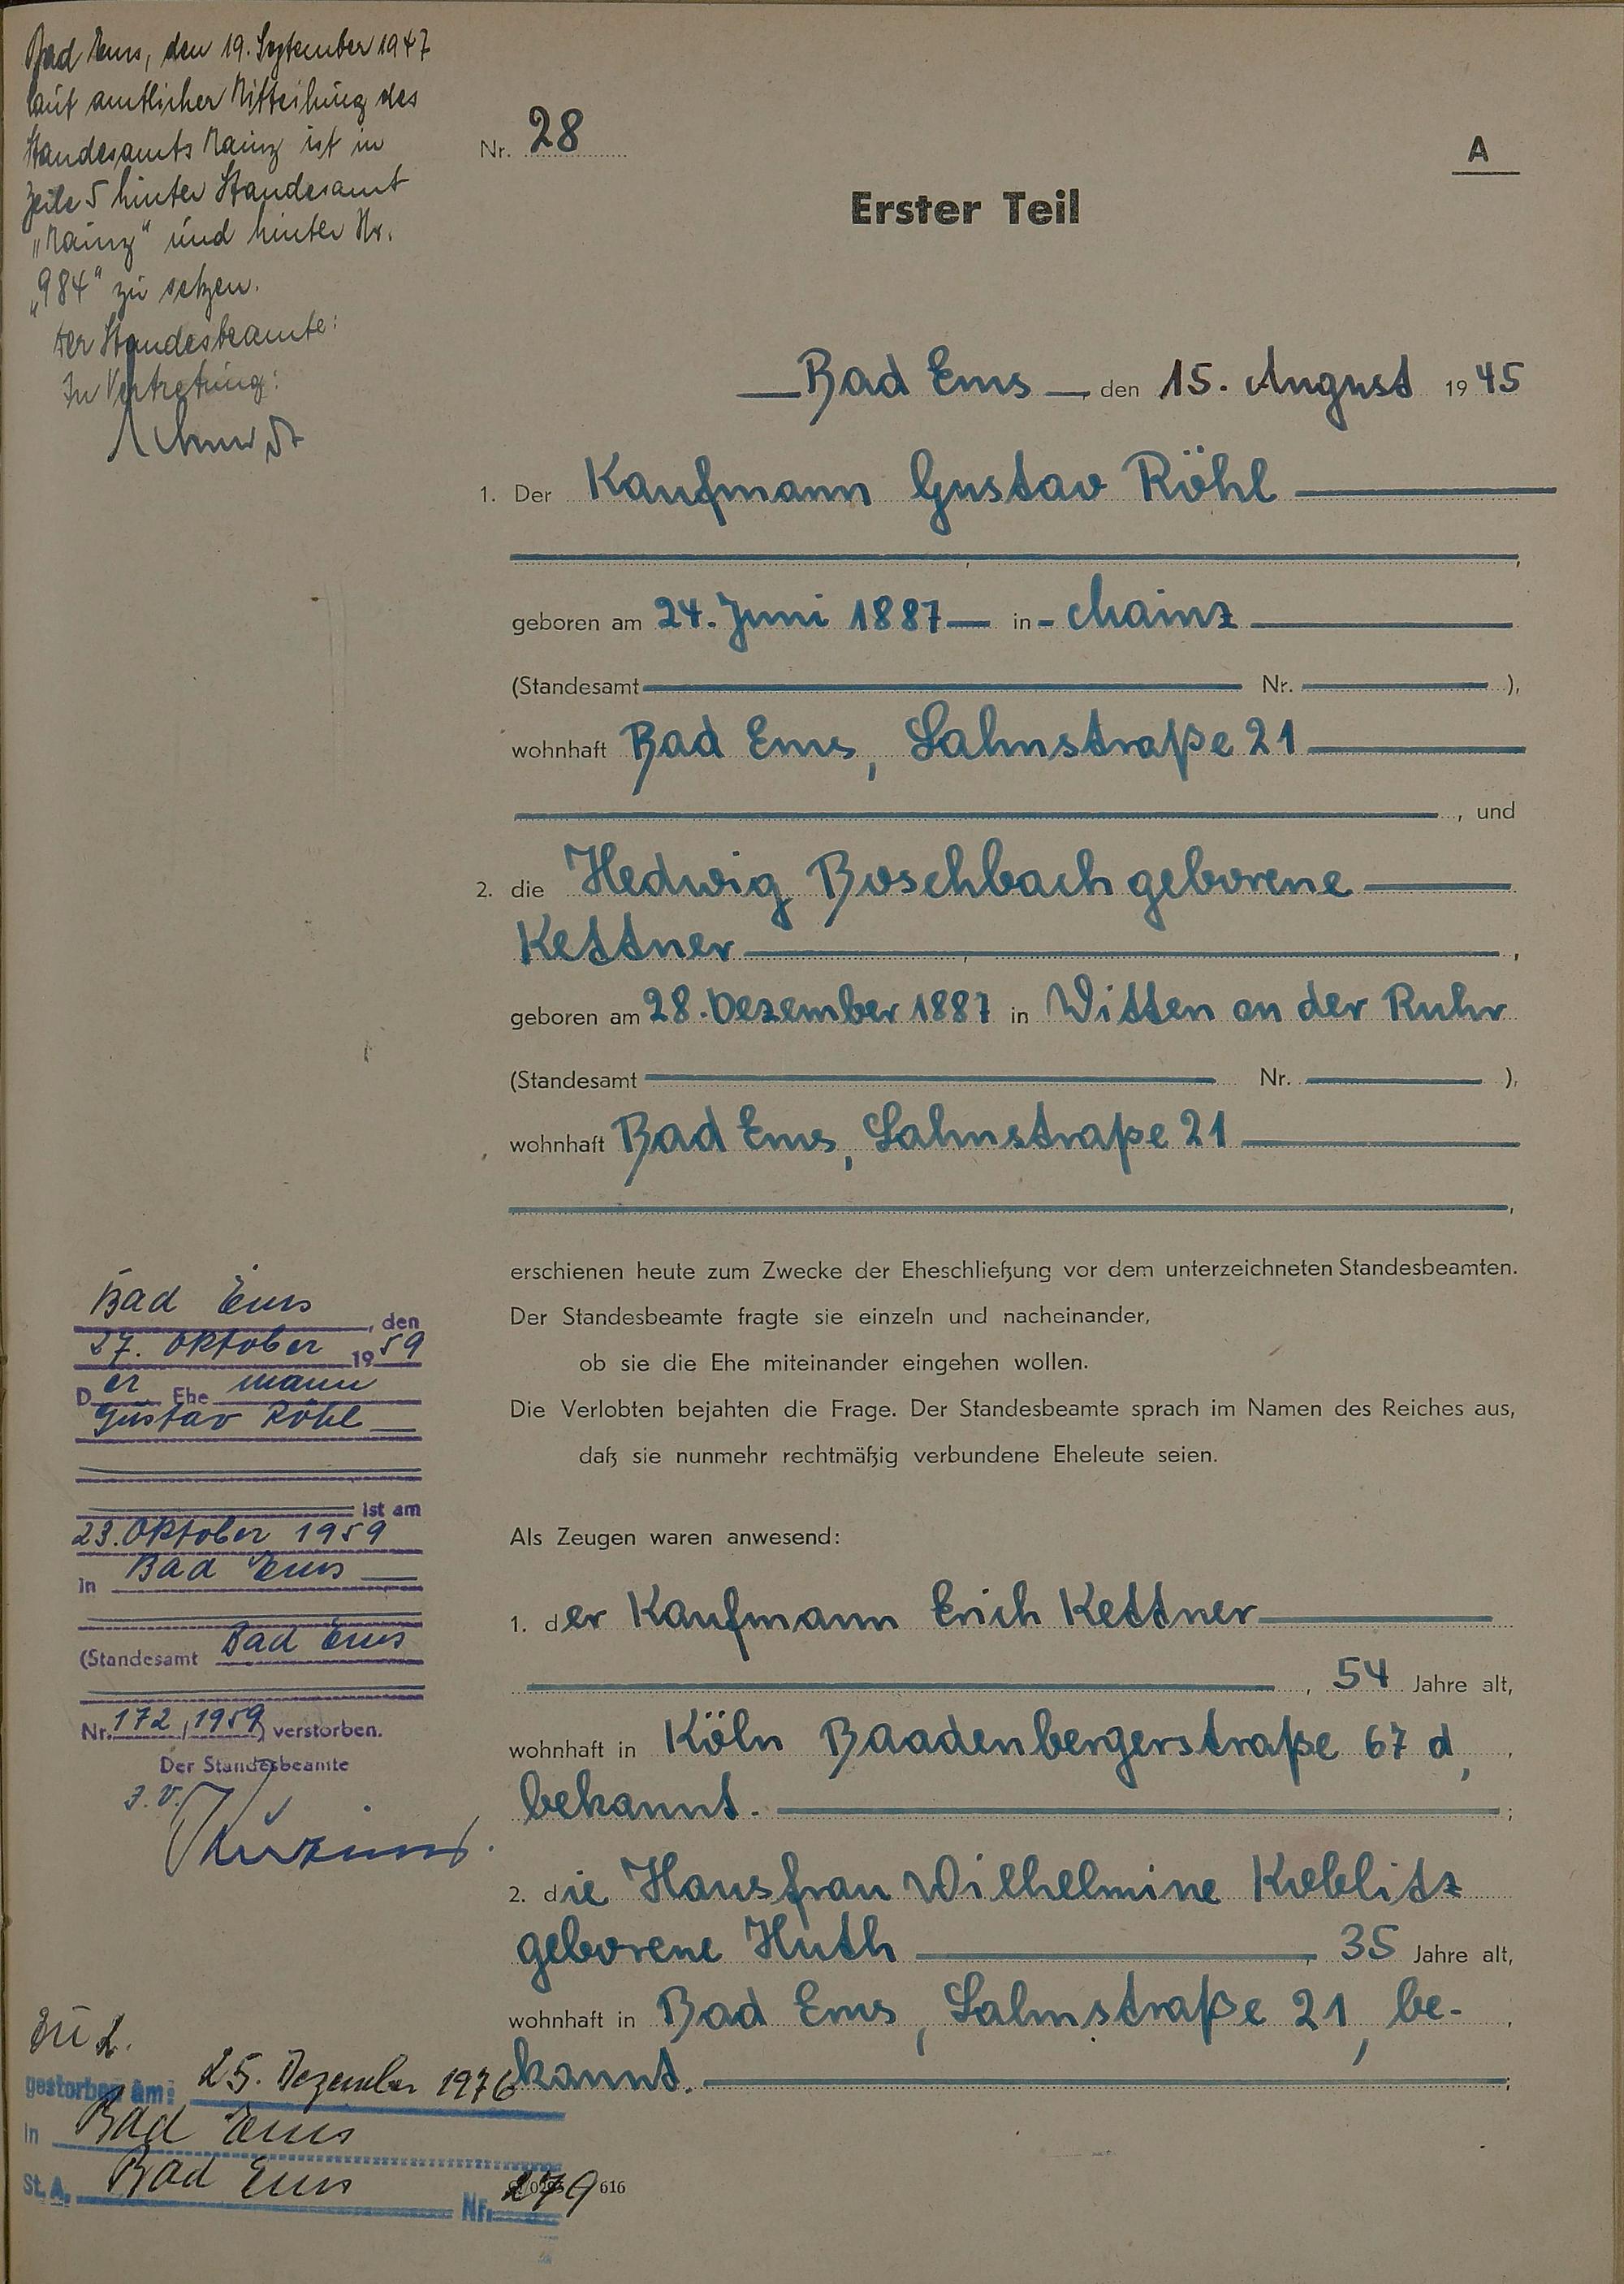 Bad Ems, den 19. September 1947
laut amtlicher Mitteilung des
Standesamts Mainz ist in
Zeile 5 hinter Standesamt
„Mainz“ und hinter Nr.
„984“ zu setzen.
Der Standesbeamte:
In Vertretung:
Schmidt
Nr. 28
A
Erster Teil
Bad Ems, den 15. August 1945
1. Der Kaufmann Gustav Röhl
geboren am 24. Juni 1887 in Mainz
(Standesamt Nr. ),
wohnhaft Bad Ems, Lahnstraße 21
, und
2. die Hedwig Boschbach geborene
Kettner,
geboren am 28. Dezember 1887 in Witten an der Ruhr
(Standesamt Nr. ),
wohnhaft Bad Ems, Lahnstraße 21
erschienen heute zum Zwecke der Eheschließung vor dem unterzeichneten Standesbeamten.
Der Standesbeamte fragte sie einzeln und nacheinander,
ob sie die Ehe miteinander eingehen wollen.
Die Verlobten bejahten die Frage. Der Standesbeamte sprach im Namen des Reiches aus,
daß sie nunmehr rechtmäßig verbundene Eheleute seien.
Als Zeugen waren anwesend:
1. der Kaufmann Erich Kettner
, 54 Jahre alt,
wohnhaft in Köln Baadenbergerstraße 67 d,
bekannt. ;
2. die Hausfrau Wilhelmine Koblitz
geborene Huth, 35 Jahre alt,
wohnhaft in Bad Ems, Lahnstraße 21, be-
kannt. ;
Bad Ems, den
27. Oktober 1959
Der Ehemann
Gustav Röhl
ist am
23. Oktober 1959
in Bad Ems
(Standesamt Bad Ems
Nr. 172/1959) verstorben.
Der Standesbeamte
I.V.
zu 2.
gestorben am: 25. Dezember 1976
in Bad Ems
St. A. Bad Ems Nr. 279
616